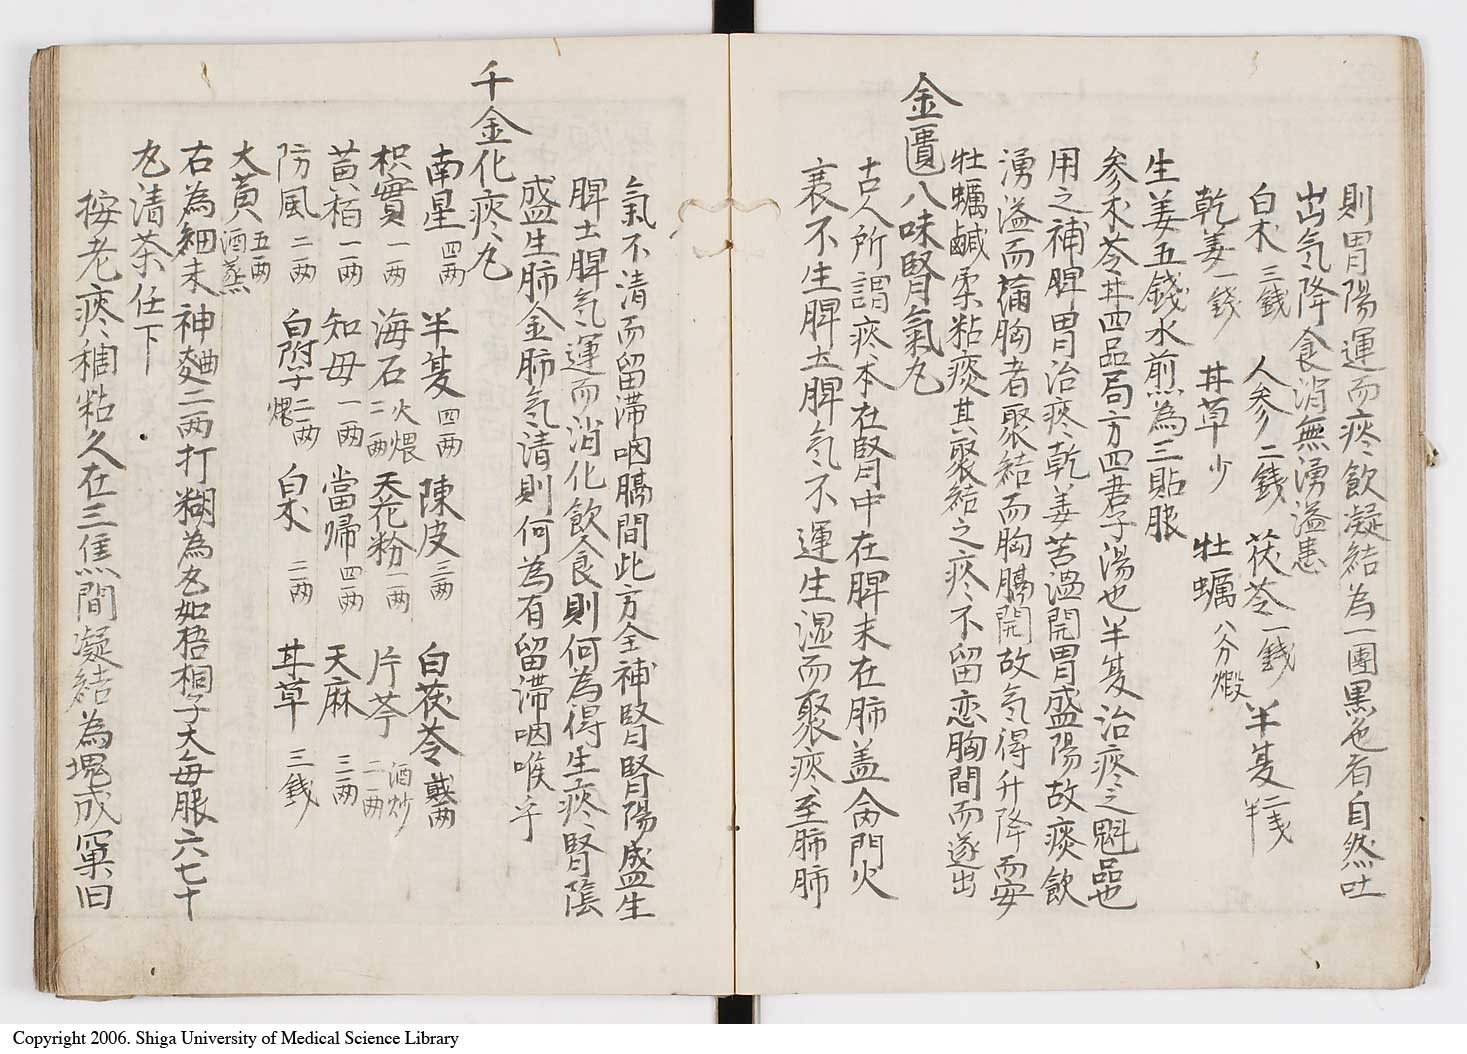 則胃陽運而痰飲凝結為一團黒色者自然吐
出気降食消無湧溢患
白朮三錢 人参二錢 茯苓一錢 半夏一錢半
乾姜一錢 甘草少 牡蠣八分煅
生姜五錢水煎為三貼服
参朮苓甘四品局方四君子湯也半夏治痰之魁品也
用之補脾胃治痰乾姜苦温開胃盛陽故痰飲
湧溢而痛胸者聚結而胸膈開故気得升降而安
牡蠣鹹柔粘痰其聚結之痰不留恋胸間而遂出
金匱八味腎氣丸
古人所謂痰本在腎中在脾末在肺盖命門火
衰不生脾土脾気不運生湿而聚痰至肺肺
氣不清而留滞咽膈間此方全補腎腎陽盛生
脾土脾気運而消化飲食則何為得生痰腎陰
盛生肺金肺気清則何為有留滞咽喉乎
千金化痰丸
南星四両 半夏四両 陳皮二両 白茯苓 両
枳實一両 海石二両火煨 天花粉一両 片芩二両酒炒
黄栢一両 知母一両 當帰四両 天麻二両
防風二両 白附子二両煨 白朮二両 甘草三錢
大黄五両酒蒸
右為細末神麹二両打糊為丸如梧桐子大每服六七十
丸清茶任下
按老痰稠粘久在三焦間凝結為塊成窠旧